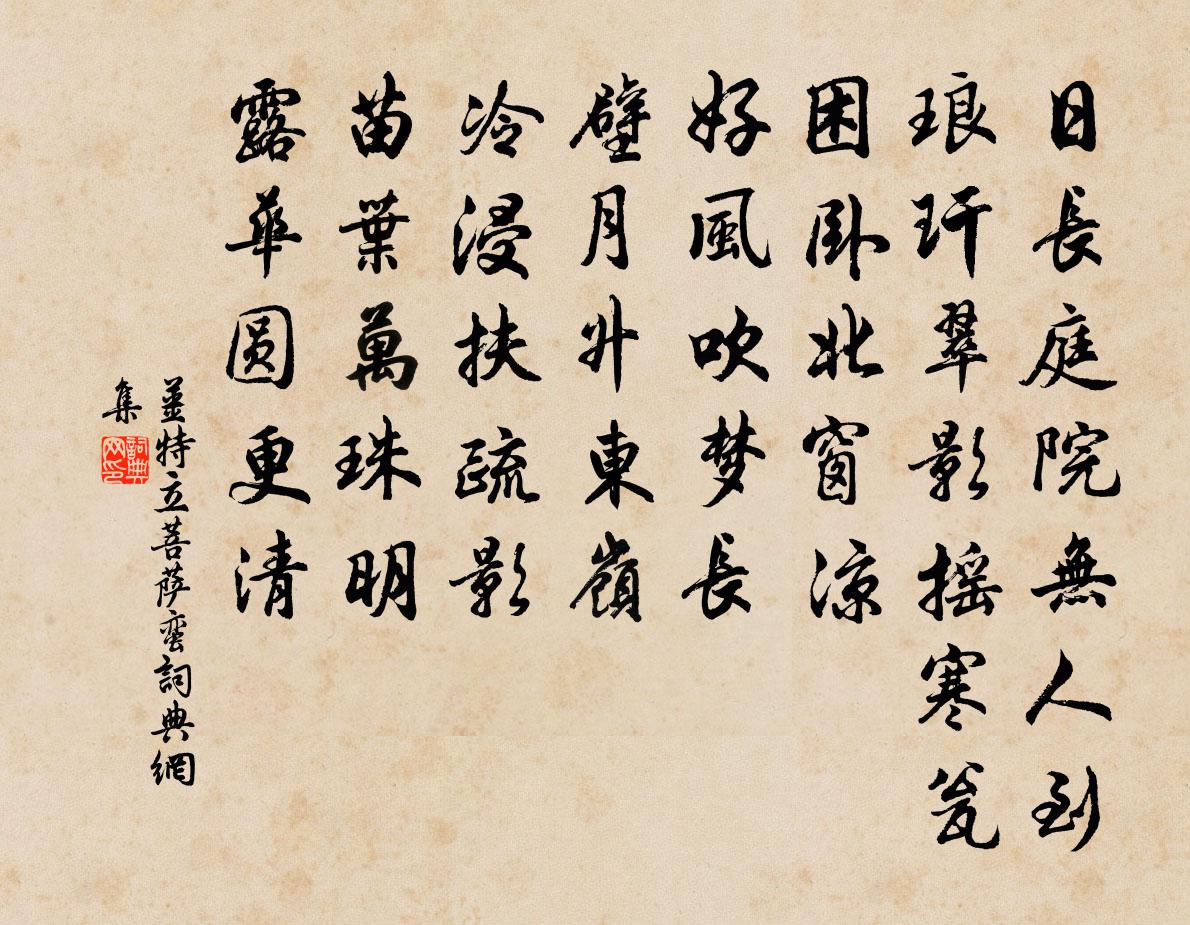 日長庭院無人到
琅玕翠影摇寒瓮
困卧北窗涼
好風吹梦長
壁月升東嶺
冷浸扶疏影
苗葉萬珠明
露華圆更清
姜特立菩萨蛮詞典網
集
詞典网印